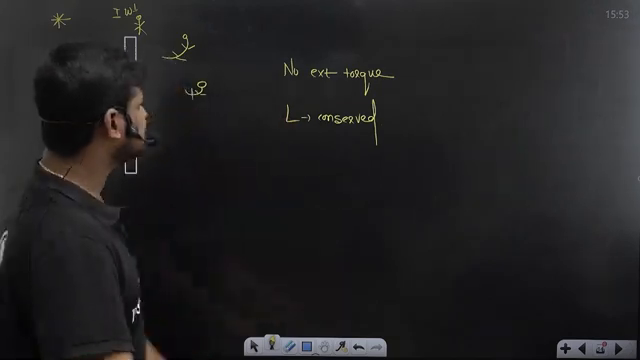 15:53
I ω'
No ext torque
L → conserved